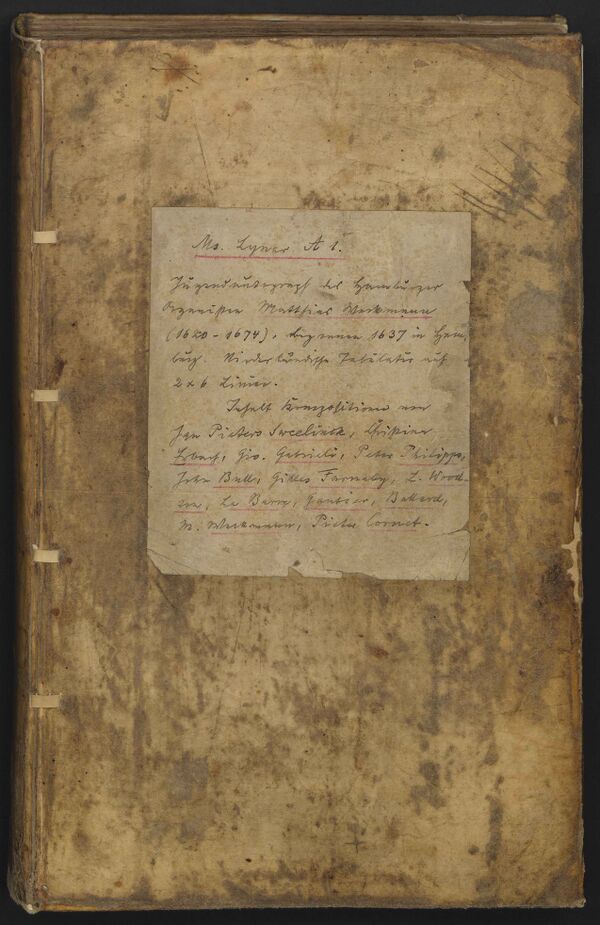 Ms. Lynar A 1.
Jugendautograph des Hamburger
Organisten Matthias Weckmann
(1620-1674), begonnen 1637 in Ham-
burg. Niederländische Tabulatur auf
2 x 6 Linien.
Inhalt Kompositionen von
Jan Pieters Sweelinck, Christian
Erbach, Gio. Gabrieli, Peter Philipps,
John Bull, Gilles Farnaby, L. Wood-
son, La Barre, Gautier, Ballard,
M. Weckmann, Pieter Cornet.